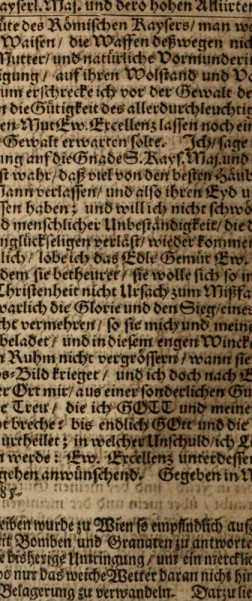 ayserl. Maj. und dero hohen Alliirten
üte des Römischen Kaysers / man we
Waisen / die Waffen deßwegen nic
Mutter / und natürliche Vormunderin
igung / auf ihren Wolstand und
um erschrecke ich vor der Gewalt de
n die Gütigkeit des allerdurchleuchtig
en Mut Ew. Excellenz lassen noch ei
Gewalt erwarten solte. Ich / sage
ung auf die Gnade S. Kays. Maj. und
st wahr / daß viel von den besten Häub
ann verlassen / und also ihren Eyd u
sen haben; und will ich nicht schwö
d menschlicher Unbeständigkeit / die d
nglückseligen verläst / wieder kommet
lich / lobe ich das Edle Gemüt Ew.
dem sie betheuret / sie wolle sich so in
Christenheit nicht Ursach zum Mißfa
warlich die Glorie und den Sieg / eine
cht vermehren / so sie mich und meine
beladet / und in diesem engen Wincke
n Ruhm nicht vergrössern / wann sie
s-Bild krieget / und ich doch nach E
er Ort mir / aus einer sonderlichen Gü
e Treu / die ich GOTT und meine
t breche: bis endlich GOtt und die
urtheilet; in welcher Unschuld / ich L
werde: Ew. Excellenz unterdessen
gehen anwünschend. Gegeben in M
85.
eiben wurde zu Wien so empfindlich aufg
it Bomben und Granaten zu antworte
e bisherige Umringung / um ein mercklic
os nur das weiche Wetter daran nicht hin
Belagerung zu verwandeln. Darzu in